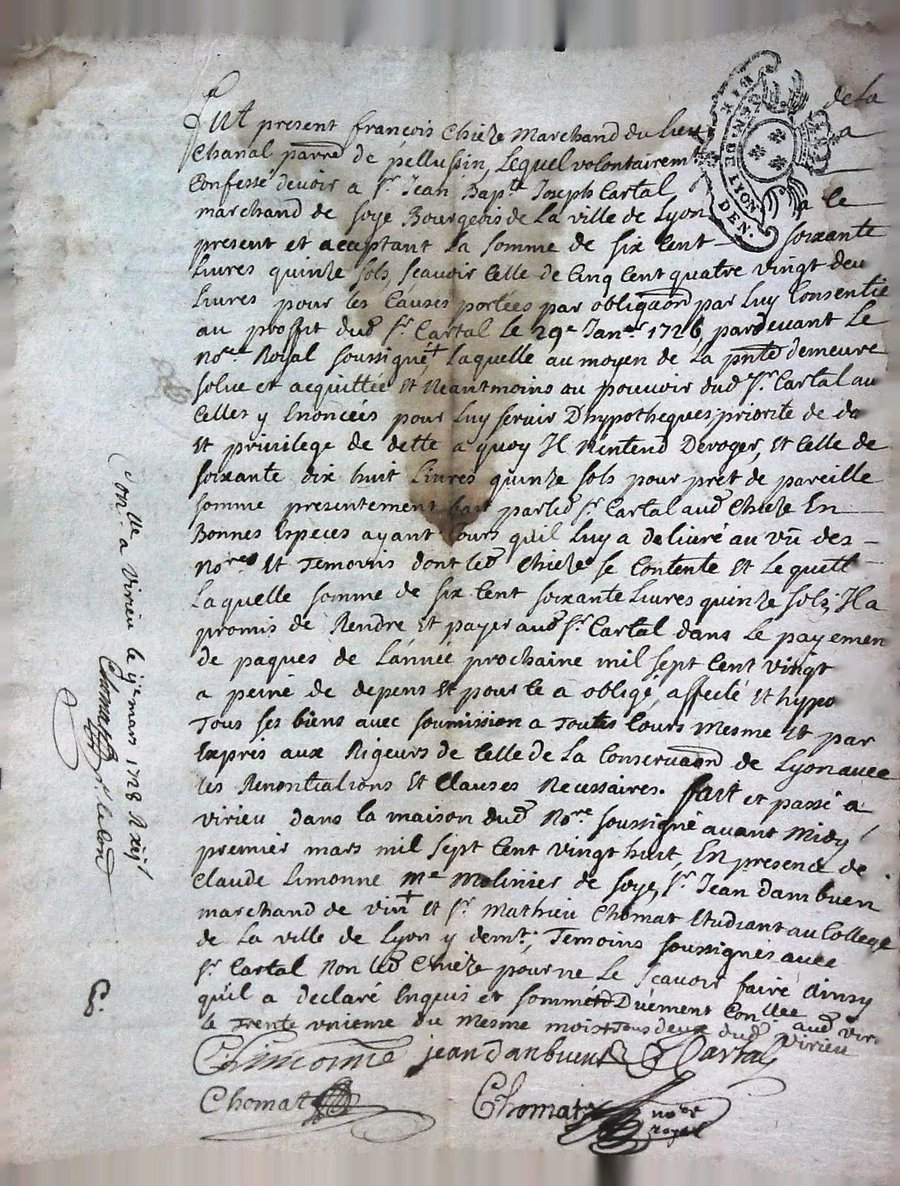 de la
Fut present françois Chieze Marchand du Lieu
Chanal parre de pellussin, Lequel volontairem
Confesse devoir a Sr. Jean Bapte Joseph Cartal
marchand de soye Bourgeois de La ville de Lyon a ce
present et aceptant La somme de six Cent soixante
Livres quinze sols, scavoir Celle de Cinq Cent quatre vingt deu
Livres pour les Causes portées par obligaõn par Luy Consentie
au proffit dud Sr. Cartal Le 29e Janer 1726 pardevant Le
Nore Royal soussigné, Laquelle au moyen de La pnte demeure
solue et acquittée Et Neantmoins au pouvoir dud Sr. Cartal au
Celles y Enoncées pour Luy servir D'hypotheques, priorite de da
Et privilege de dette a quoy Il N'entend Deroger, Et Celle de
soixante dix huit Livres quinze sols pour prêt de pareille
somme presentement fait par led Sr. Cartal aud Chieze En
Bonnes Especes ayant Cours qu'il Luy a delivré au vû des
Nores Et Temoins dont led Chieze se Contente Et Le quitt
Laquelle somme de six Cent soixante Livres quinze sols; Il a
promis de Rendre Et payer aud Sr. Cartal dans Le payemen
de paques de L'année prochaine mil sept Cent vingt
a peine de depens Et pour Ce a obligé, affecté Et hypo
Tous ses biens avec soumission a Toutes Cours Mesme Et par
Exprès aux Rigeurs de Celle de La Conservaõn de Lyon avec
les Renontiations Et Clauses Necessaires. fait et passé a
virieu dans La maison dud Nore soussigné avant Midy
premier mars mil sept Cent vingt huit, En presence de
Claude Limonne Me Molinier de soye, Sr. Jean dambuen
marchand de vin Et Sr. Mathieu Chomat Etudiant au College
de La ville de Lyon y demt; Temoins soussignés avec
Sr. Cartal Non led Chieze pour ne Le scavoir faire Ainsy
qu'il a declaré Enquis et sommé Duement Conllée aud vir
le Trente unieme du Mesme mois Tous deux dud virieu
C Limonne jean danbuent Cartal
Chomat Chomat nore
royal
Conlle a virieu le mars 1728
Chomat
GÉN. DE LYON
DIX DEN.